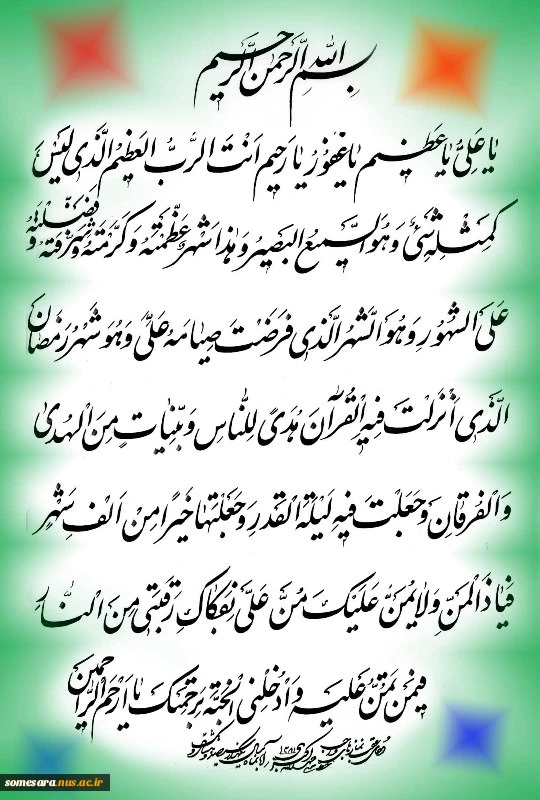 بِسْمِ اللهِ الرَّحْمٰنِ الرَّحيمِ
يا عَلِيُّ يا عَظيمُ يا غَفُورُ يا رَحيمُ اَنْتَ الرَّبُّ الْعَظيمُ الَّذي لَيْسَ
كَمِثْلِهِ شَيْءٌ وَهُوَ السَّميعُ الْبَصيرُ وَهٰذا شَهْرٌ عَظَّمْتَهُ وَكَرَّمْتَهُ وَشَرَّفْتَهُ وَفَضَّلْتَهُ
عَلَى الشُّهُورِ وَهُوَ الشَّهْرُ الَّذي فَرَضْتَ صِيامَهُ عَلَيَّ وَهُوَ شَهْرُ رَمَضانَ
الَّذي اَنْزَلْتَ فيهِ الْقُرْآنَ هُدىً لِلنّاسِ وَبَيِّناتٍ مِنَ الْهُدىٰ
وَالْفُرْقانِ وَجَعَلْتَ فيهِ لَيْلَةَ الْقَدْرِ وَجَعَلْتَها خَيْراً مِنْ اَلْفِ شَهْرٍ
فَيا ذَا الْمَنِّ وَلا يُمَنُّ عَلَيْكَ مُنَّ عَلَيَّ بِفَكاكِ رَقَبَتي مِنَ النّارِ
فيمَنْ تَمُنُّ عَلَيْهِ وَاَدْخِلْنِي الْجَنَّةَ بِرَحْمَتِكَ يا اَرْحَمَ الرّاحِمينَ
somesara.nus.ac.ir